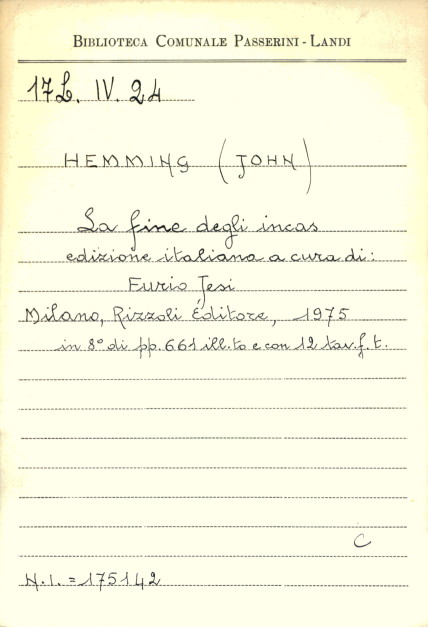 BIBLIOTECA COMUNALE PASSERINI - LANDI
17L. IV. 24
HEMMING (JOHN)
La fine degli incas
edizione italiana a cura di:
Furio Jesi
Milano, Rizzoli Editore, 1975
in 8° di pp. 661 ill.to e con 12 tav. f. t.
C
N.I. = 175142